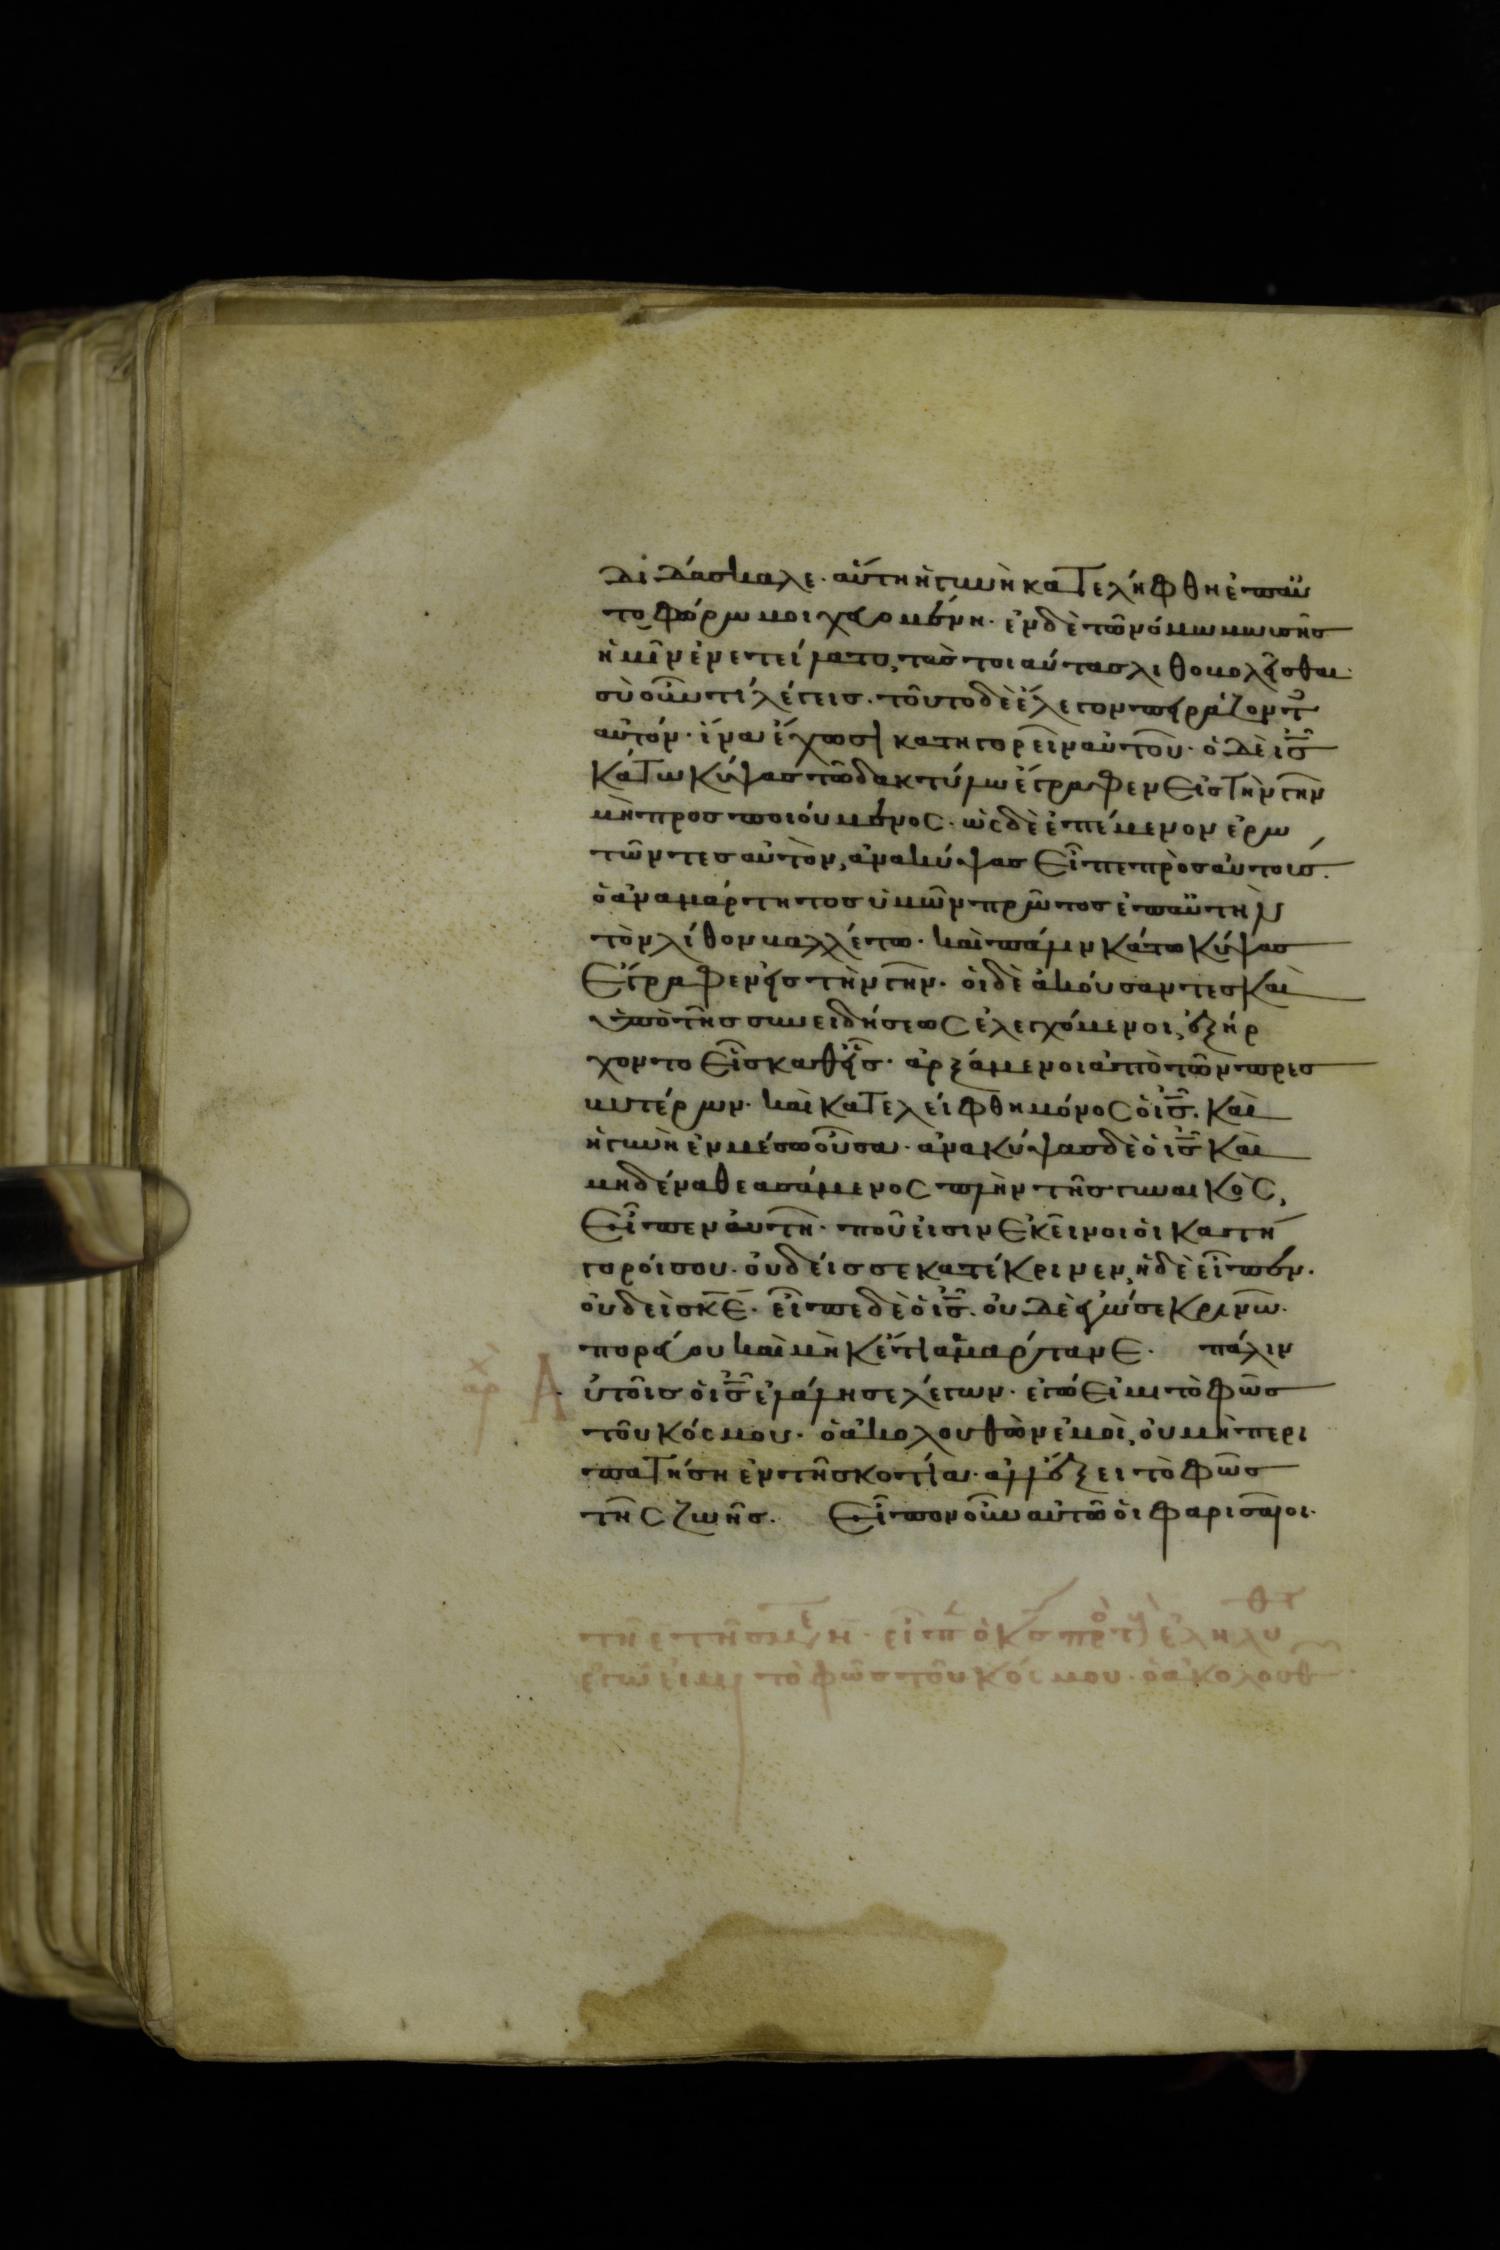 διδάσκαλε· αὕτη ἡ γυνὴ κατελήφθη ἐπαυ
τοφόρω μοιχευομένη· ἐν δὲ τῶ νόμω μωυσῆς
ἡμῖν ἐνετείλατο, τὰς τοιαύτας λιθοβολεῖσθαι·
σὺ οὖν τί λέγεις· τοῦτο δὲ ἔλεγον πειράζοντες
αὐτόν· ἵνα ἔχωσι κατηγορεῖν αὐτοῦ· ὁ δὲ ις
κάτω κύψας τῶ δακτύλω ἔγραφεν εἰς τὴν γῆν
μὴ προσποιούμενος· ὡς δὲ ἐπέμενον ἐρω
τῶντες αὐτὸν, ἀνακύψας εἶπε πρὸς αὐτούς·
ὁ ἀναμάρτητος ὑμῶν πρῶτος ἐπ αὐτὴν
τὸν λίθον βαλλέτω· καὶ πάλιν κάτω κύψας
ἔγραφεν εἰς τὴν γῆν· οἱ δὲ ἀκούσαντες καὶ
ὑπὸ τῆς συνειδήσεως ἐλεγχόμενοι, ἐξήρ
χοντο εἷς καθεῖς· ἀρξάμενοι ἀπὸ τῶν πρεσ
βυτέρων· καὶ κατελείφθη μόνος ὁ ις· καὶ
ἡ γυνὴ ἐν μέσω οὖσα· ἀνακύψας δὲ ὁ ις καὶ
μηδένα θεασάμενος πλὴν τῆς γυναικὸς,
εἶπεν αὐτῆ· ποῦ εἰσιν ἐκεῖνοι οἱ κατή
γοροί σου· οὐδείς σε κατέκρινεν, ἡ δὲ εἶπεν·
οὐδεὶς κε· εἶπε δὲ ὁ ις· οὐδὲ ἐγώ σε κρίνω·
πορεύου καὶ μηκέτι ἁμάρτανε· πάλιν
αὐτοῖς ὁ ις ἐλάλησε λέγων· ἐγώ εἰμι τὸ φῶς
τοῦ κόσμου· ὁ ἀκολουθῶν ἐμοὶ, οὐ μὴ περι
πατήση ἐν τῆ σκοτία· ἀλλ ἕξει τὸ φῶς
τῆς ζωῆς· εἶπον οὖν αὐτῶ οἱ φαρισαῖοι·
ἐγώ εἰμι τὸ φῶς τοῦ κόσμου· ὁ ἀκολουθ